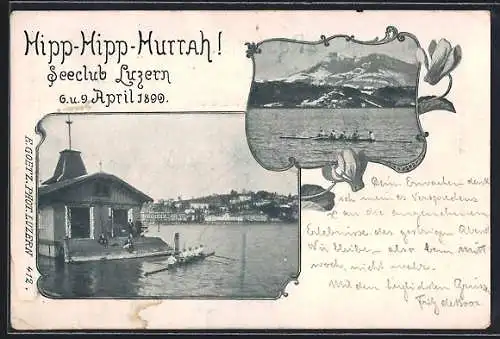 Hipp-Hipp-Hurrah!
Seeclub Luzern
6. u. 9. April 1899.
E. GOETZ, PHOT. LUZERN 412.
Beim Erwachen denk
ich an die angenehmen
Erlebnisse des gestrigen Abend
Wir bleiben also beim Mitt
woch, nicht mehr.
Mit den herzlichsten Grüssen
Fritz